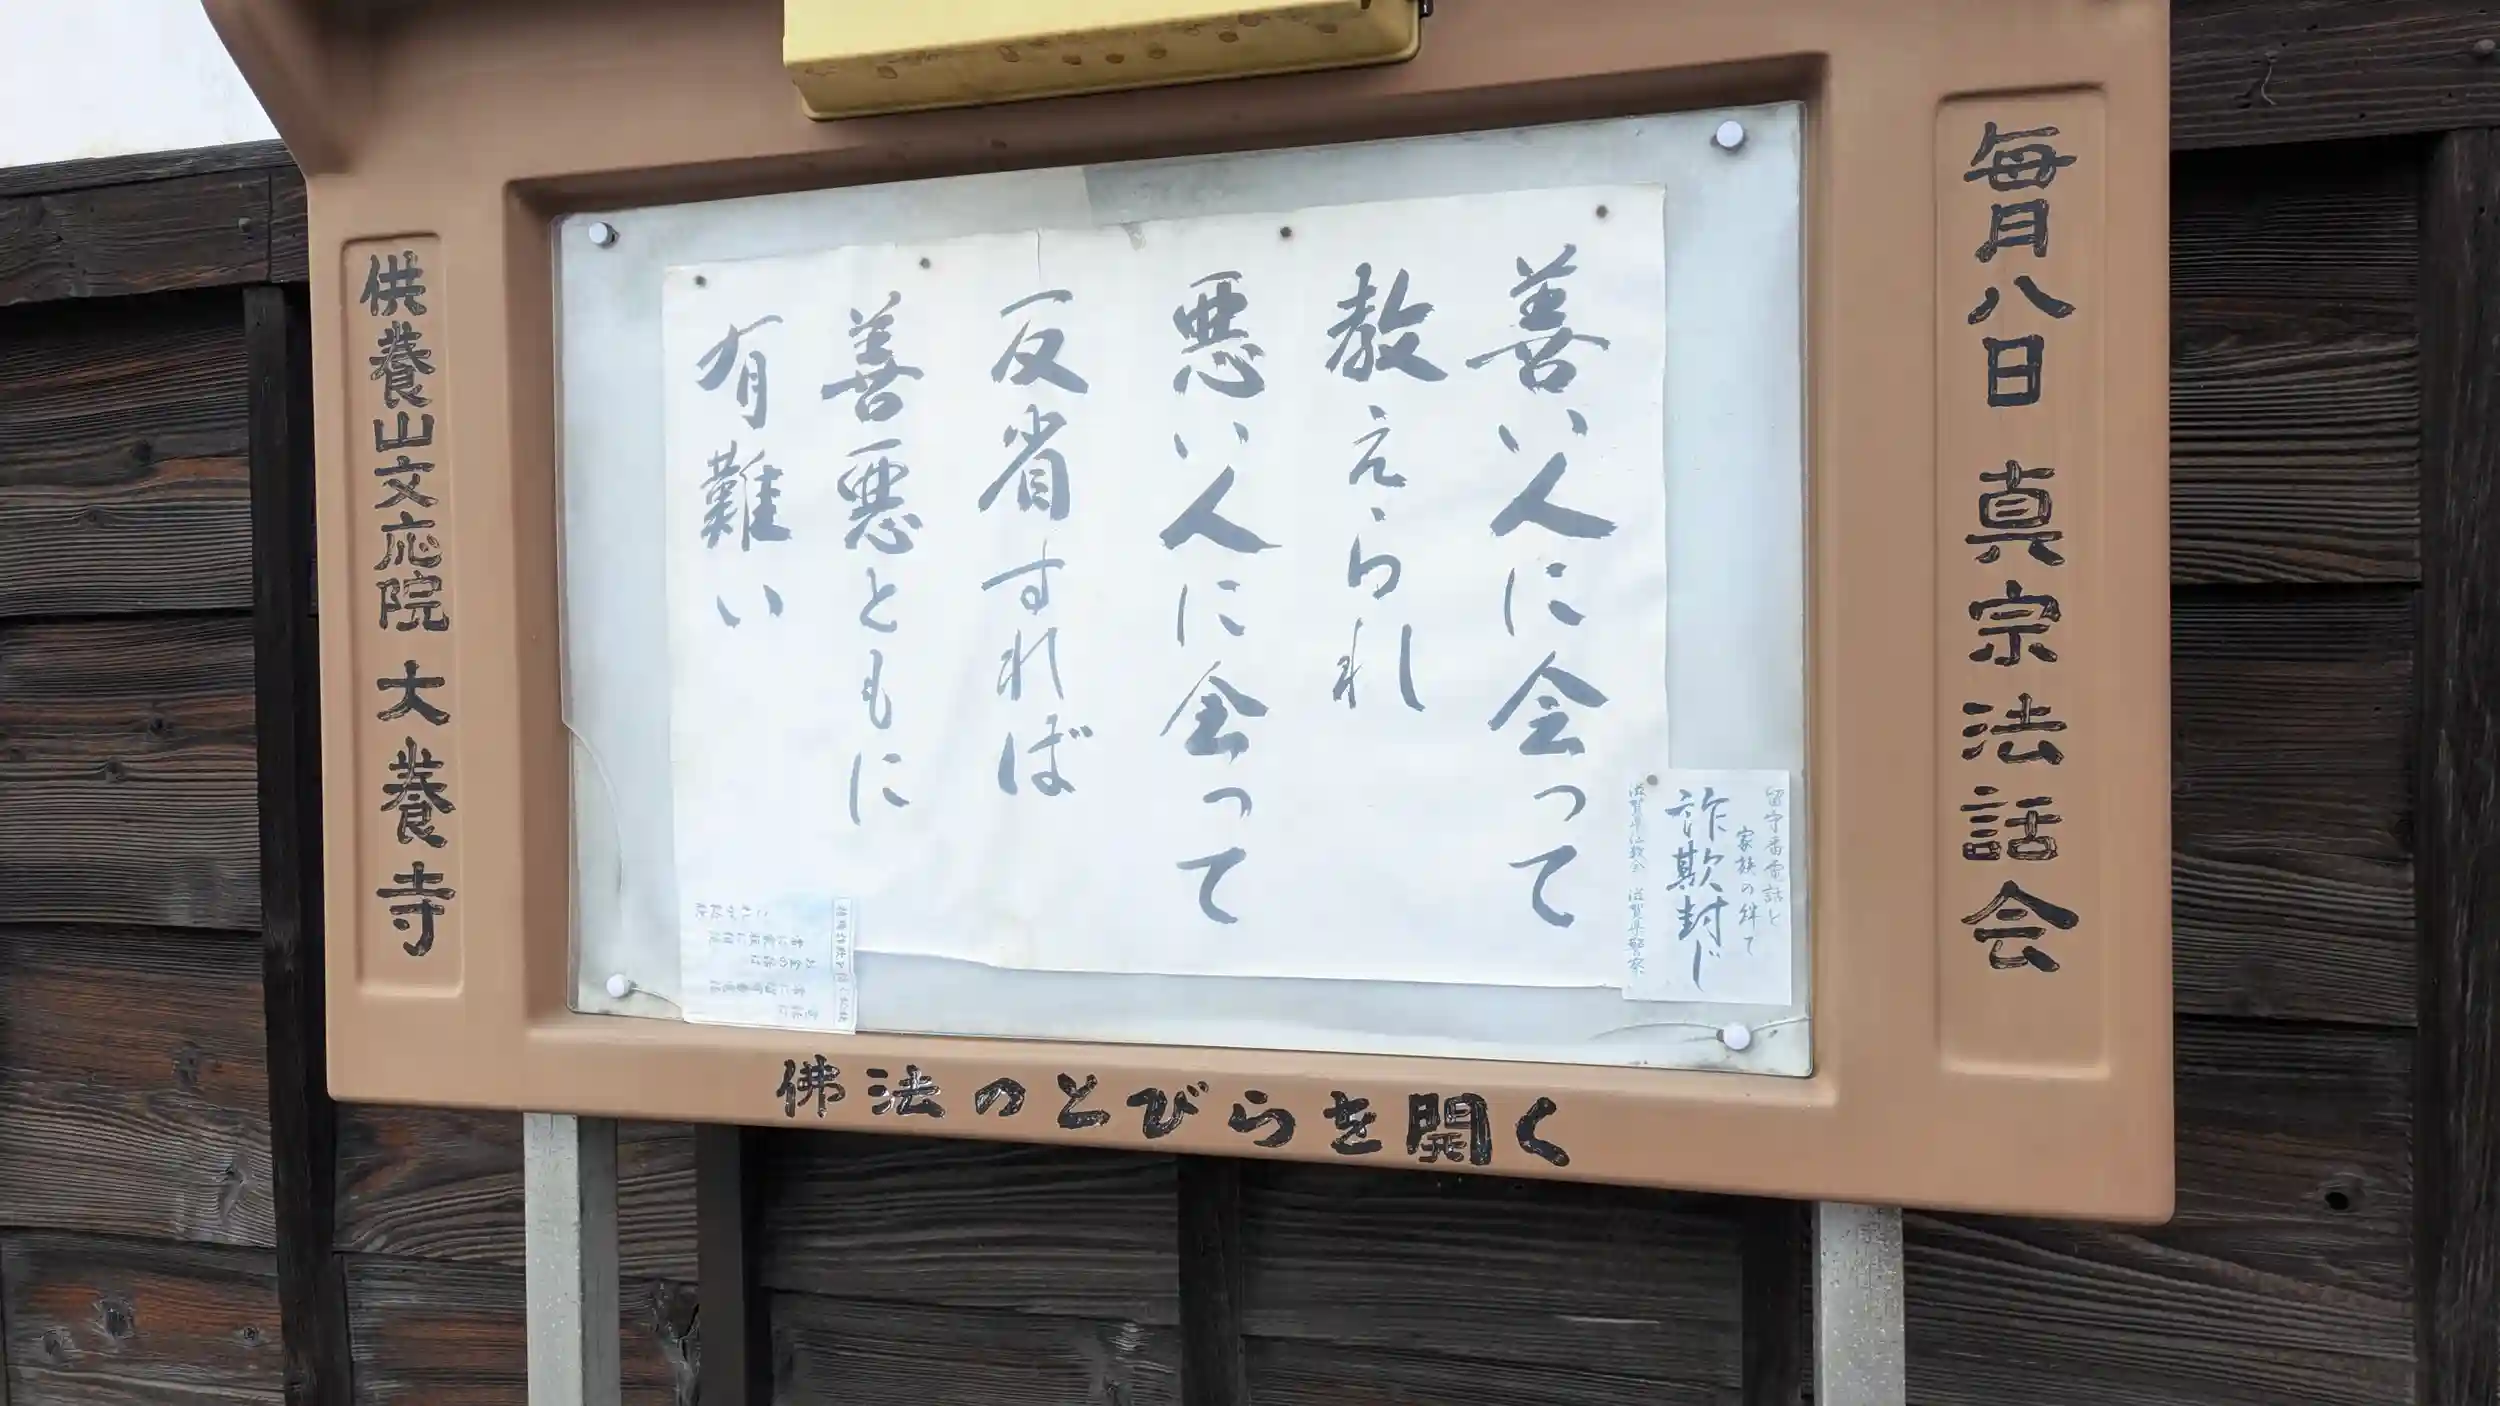 毎月八日 真宗法話会
善い人に会って
教えられ
悪い人に会って
反省すれば
善悪ともに
有難い
留守番電話と
家族の絆で
詐欺封じ
滋賀県仏教会 滋賀県警察
供養山文応院 大養寺
佛法のとびらを開く